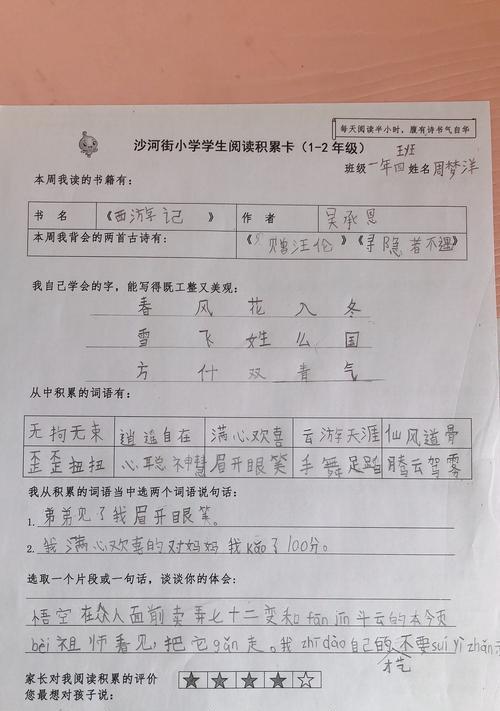 每天阅读半小时，腹有诗书气自华
沙河街小学学生阅读积累卡（1-2年级）
班级 一年四班 姓名 周梦洋
本周我读的书籍有：
书 名 《西游记》 作 者 吴承恩
本周我背会的两首古诗有： 《赠汪伦》《寻隐者不遇》
我自己学会的字，能写得既工整又美观：
春 风 花 入 冬
雪 飞 姓 么 国
方 什 双 青 气
从中积累的词语有：
无拘无束 逍遥自在 满心欢喜 云游天涯 仙风道骨
歪歪扭扭 心聪神慧 眉开眼笑 手舞足蹈 腾云驾雾
我从积累的词语当中选两个词语说句话：
1. 弟弟见了我眉开眼笑。
2. 我满心欢喜的对妈妈 我kǎo了100分。
选取一个片段或一句话，谈谈你的体会：
悟空在众人面前卖弄七十二变和fān jīn斗云的本令页
bèi祖师看见，把它gǎn走。我zhī dào自己的才艺不要suí yì zhǎn
家长对我阅读积累的评价
您最想对孩子说：